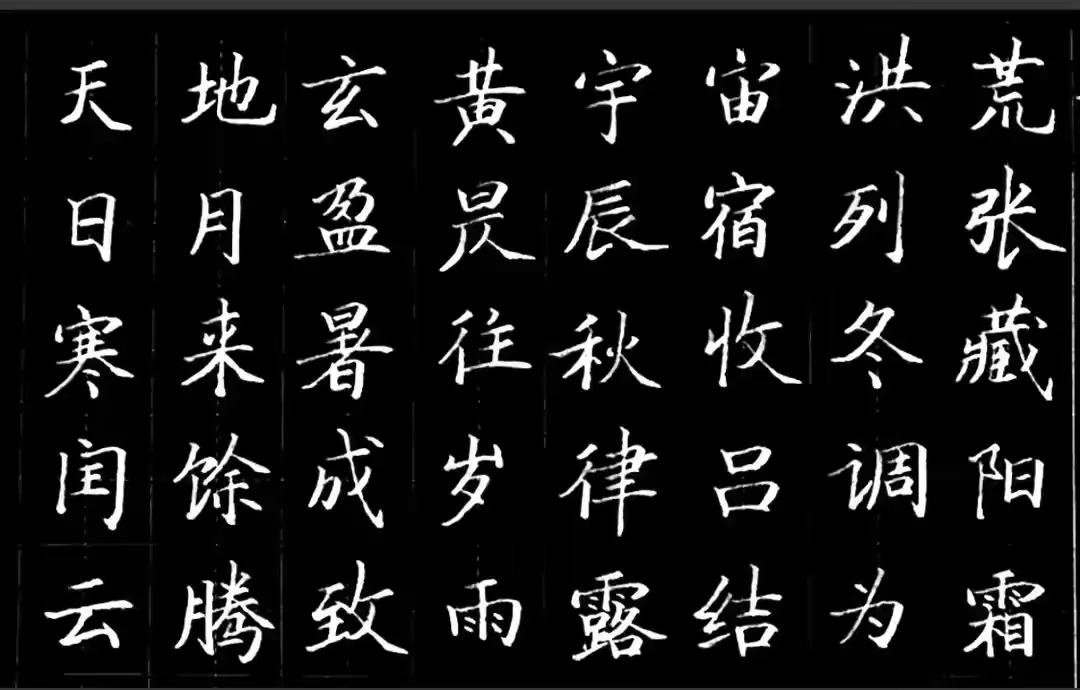 天地玄黄宇宙洪荒
日月盈昃辰宿列张
寒来暑往秋收冬藏
闰馀成岁律吕调阳
云腾致雨露结为霜